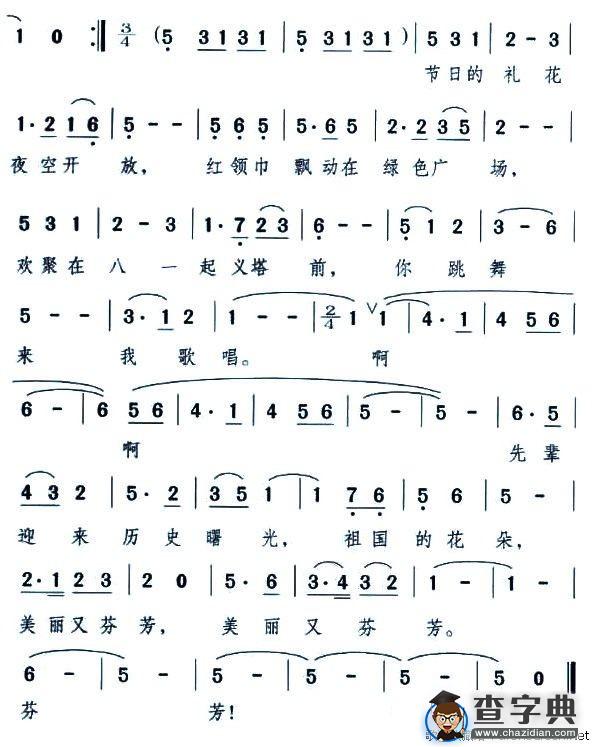 1 0 :‖ 3/4 ( 5 3131 | 5 3131 ) | 5 3 1 | 2 - 3 |
节日的 礼 花
1·2 1 6 | 5 - - | 5 6 5 | 5·6 5 | 2·2 3 5 |
夜空开 放, 红领巾 飘动在 绿色广 场,
5 3 1 | 2 - 3 | 1·7 2 3 | 6 - - | 5 1 2 | 3 - 6 |
欢聚在 八 一 起义塔 前, 你 跳 舞
5 - - | 3·1 2 | 1 - - | 2/4 1 ∨ 1 | 4·1 | 4 5 6 |
来 我 歌 唱。 啊
6 - | 6 5 6 | 4·1 | 4 5 6 | 5 - | 5 - | 6·5 |
啊 先 辈
4 3 2 | 5·2 | 3 5 1 | 1 7 6 | 5 6 | 5 - |
迎 来 历 史 曙 光, 祖国 的 花 朵,
2·1 2 3 | 2 0 | 5·6 | 3·4 3 2 | 1 - | 1 - |
美丽又 芬 芳, 美 丽 又 芬 芳。
6 - | 5 - | 5 - | 5 - | 5 - | 5 0 ‖
芬 芳!
查字典
www.chazidian.com